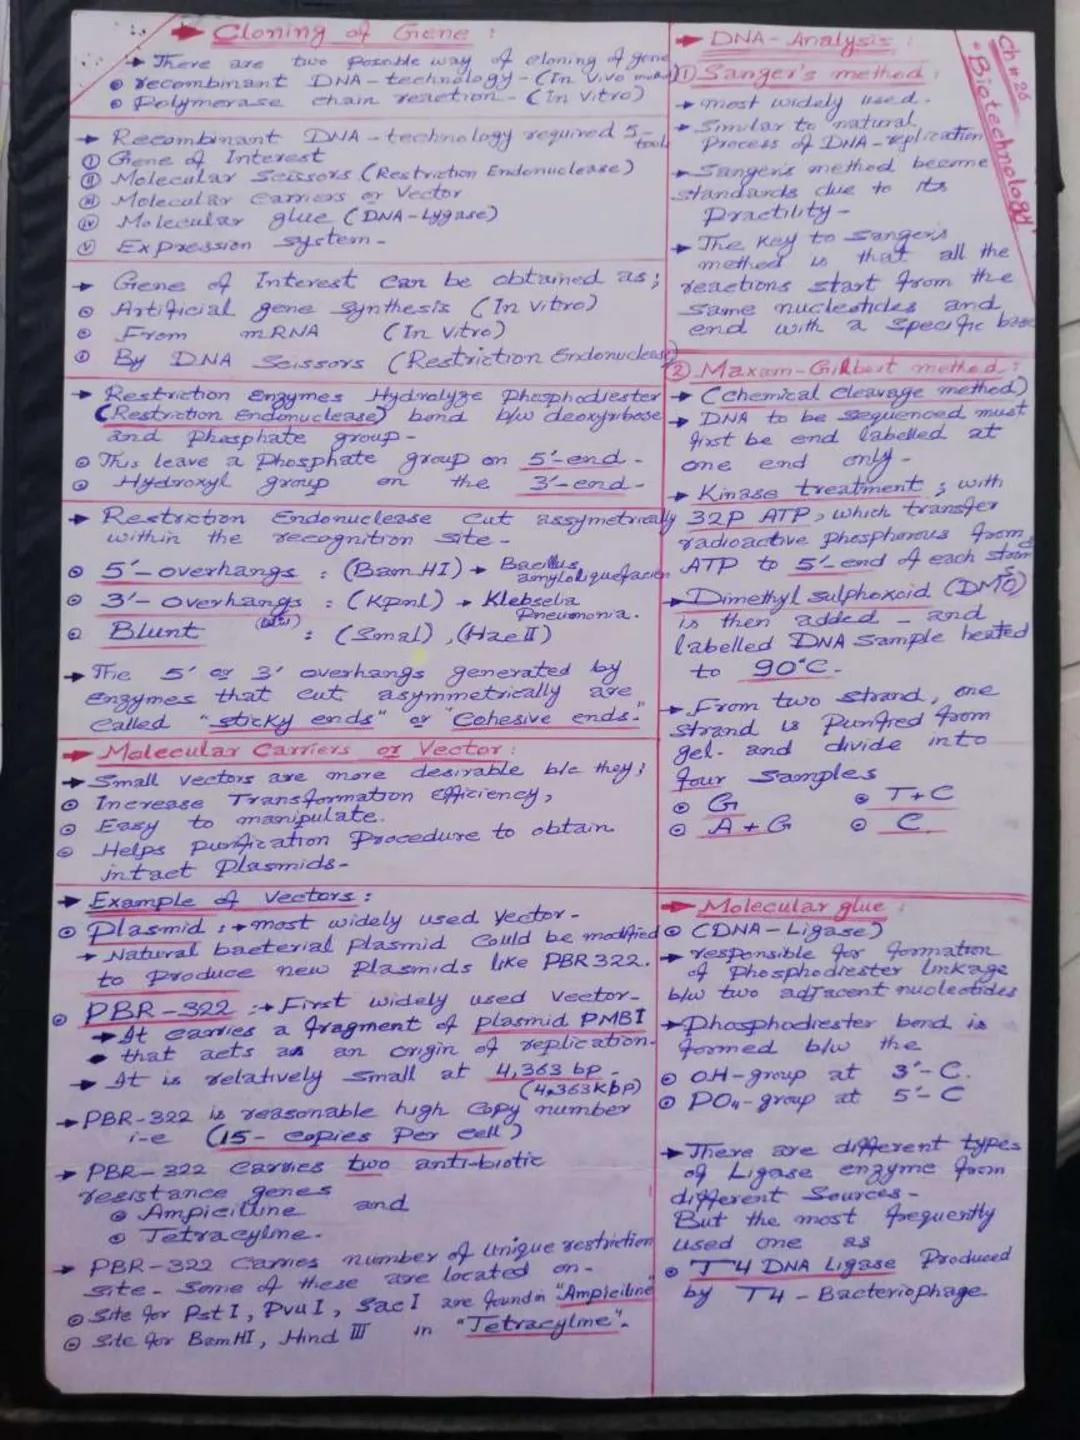 → Cloning of Gene :
→ There are two possible way of cloning of gene
⊙ recombinant DNA-technology - (In Vivo
⊙ Polymerase chain reaction - (In Vitro)
→ Recombinant DNA-technology required 5-tools
(i) Gene of Interest
(ii) Molecular Scissors (Restriction Endonuclease)
(iii) Molecular carriers or Vector
(iv) Molecular glue (DNA-Lygase)
(v) Expression system -
→ Gene of Interest can be obtained as;
⊙ Artificial gene synthesis (In Vitro)
⊙ From mRNA (In Vitro)
⊙ By DNA Scissors (Restriction Endonuclease)
→ Restriction Enzymes Hydrolyze Phosphodiester
(Restriction Endonuclease) bond b/w deoxyribose
and Phosphate group -
⊙ This leave a Phosphate group on 5'-end -
⊙ Hydroxyl group on the 3'-end -
→ Restriction Endonuclease cut assymetrically
within the recognition site -
⊙ 5'-overhangs : (BamHI) → Bacillus
amyloliquefacien
⊙ 3'-overhangs : (KpnI) → Klebselia
Pneumonia.
⊙ Blunt : (SmaI), (HaeII)
→ The 5' or 3' overhangs generated by
Enzymes that cut asymmetrically are
called "sticky ends" or "Cohesive ends."
→ Molecular Carriers or Vector :
→ Small vectors are more desirable b/c they;
⊙ Increase Transformation Efficiency,
⊙ Easy to manipulate.
⊙ Helps purification Procedure to obtain
intact Plasmids -
→ Example of Vectors :
⊙ Plasmid : → most widely used Vector -
→ Natural bacterial Plasmid could be modified
to Produce new Plasmids like PBR322.
⊙ PBR-322 : → First widely used vector -
→ It carries a fragment of plasmid PMBI
• that acts as an origin of replication -
→ It is relatively small at 4,363 bp -
(4.363Kbp)
→ PBR-322 is reasonable high Copy number
i-e (15-copies Per cell)
→ PBR-322 Carries two anti-biotic
resistance genes
⊙ Ampicilline and
⊙ Tetracyline -
→ PBR-322 Carries number of unique restriction
site - Some of these are located on -
⊙ Site for PstI, PvuI, SacI are found in "Ampiciline"
⊙ Site for BamHI, Hind III in "Tetracyline".
Ch # 26
"Biotechnology"
→ DNA-Analysis :
(1) Sanger's method :
→ most widely used -
→ Similar to natural
Process of DNA-replication
→ Sanger's method become
standards due to its
Practility -
→ The Key to Sanger's
method is that all the
reactions start from the
same nucleotides and
end with a specific base
(2) Maxam-Gilbert method :
→ (Chemical Cleavage method)
→ DNA to be sequenced must
first be end labelled at
one end only -
→ Kinase treatment ; with
32P ATP, which transfer
radioactive phosphorous from
ATP to 5'-end of each strand
→ Dimethyl sulphoxoid (DMSO)
is then added - and
labelled DNA Sample heated
to 90°C -
→ From two strand, one
strand is Purified from
gel - and divide into
four samples
⊙ G ⊙ T+C
⊙ A+G ⊙ C
→ Molecular glue :
⊙ (DNA-Ligase)
→ responsible for formation
of Phosphodiester linkage
b/w two adjacent nucleotides
→ Phosphodiester bond is
formed b/w the
⊙ OH-group at 3'-C.
⊙ PO₄-group at 5'-C
→ There are different types
of Ligase enzyme from
different Sources -
But the most frequently
used one as
⊙ T4 DNA Ligase Produced
by T4-Bacteriophage